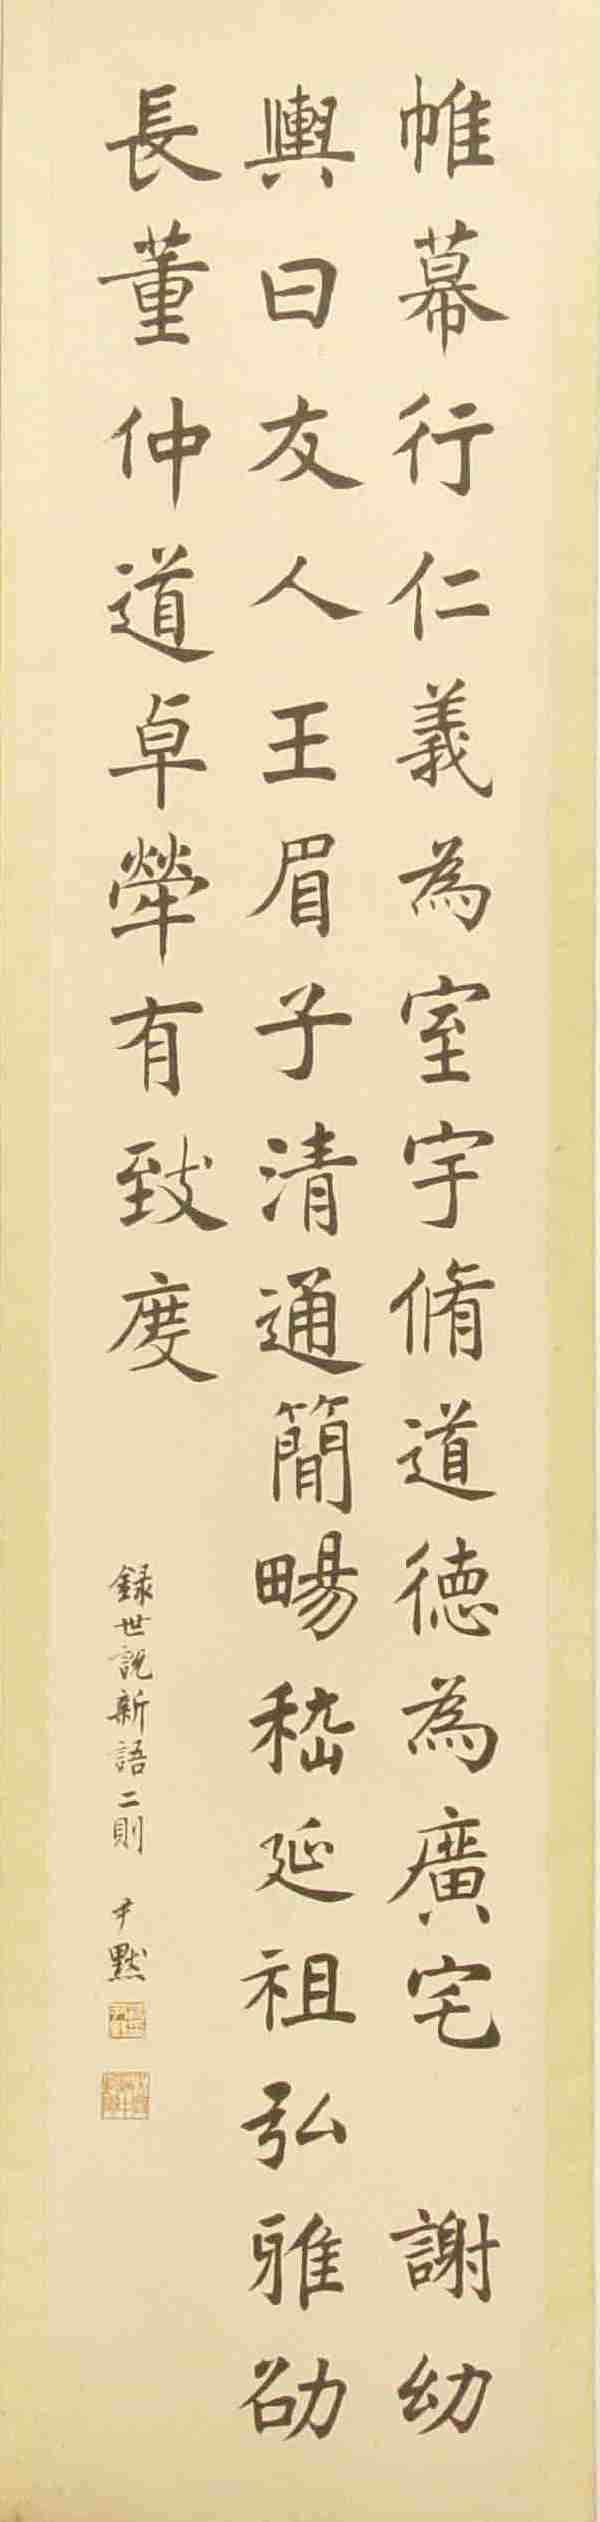 帷幕行仁義為室宇脩道德為廣宅 謝幼
輿曰友人王眉子清通簡暢嵇延祖弘雅劭
長董仲道卓犖有致度
錄世說新語二則 尹默